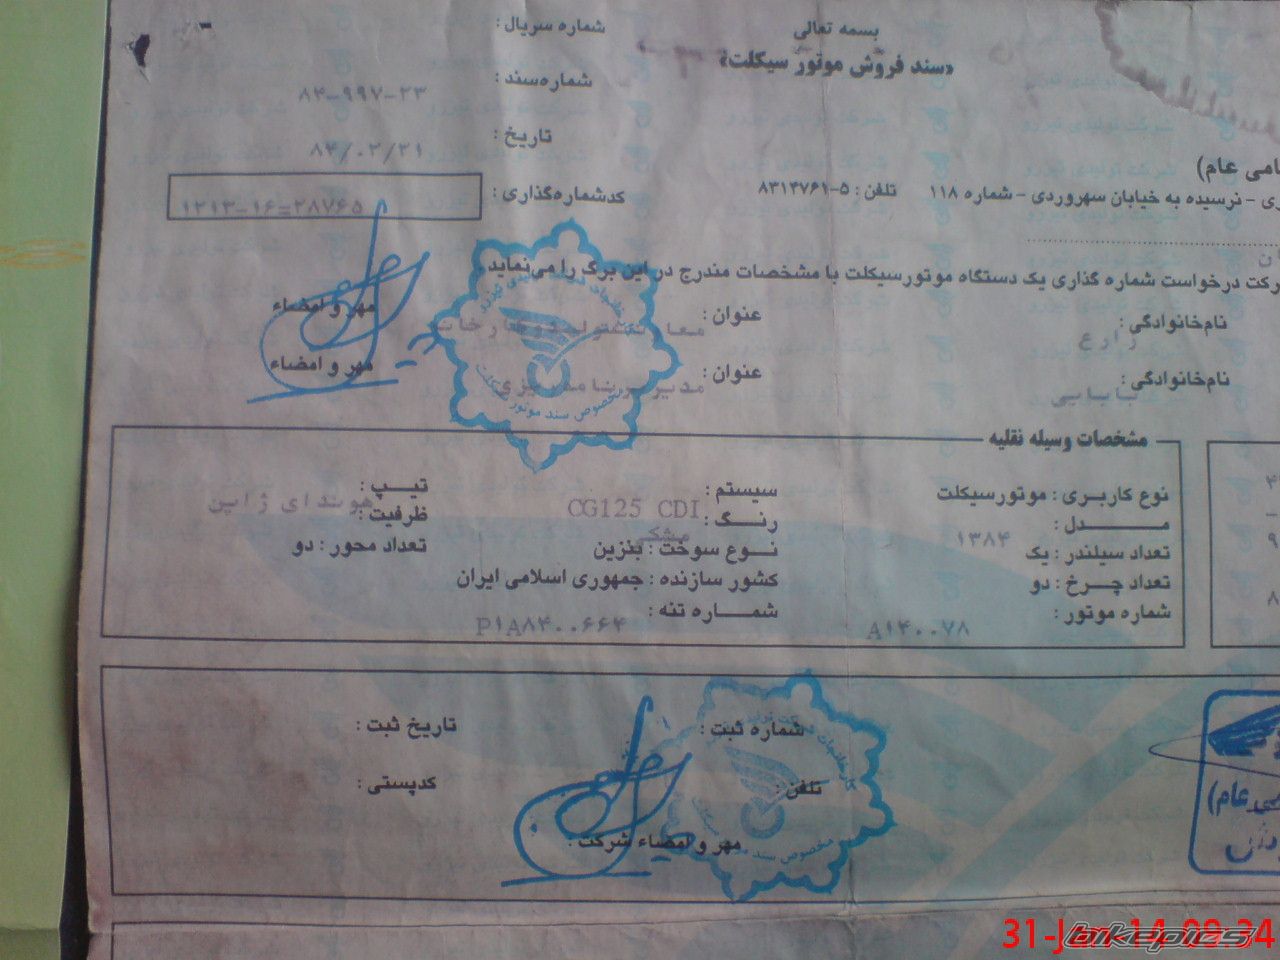 بسمه تعالی
شماره سریال :
«سند فروش موتور سیکلت»
شماره سند : ۸۴-۹۹۷-۲۳
تاریخ : ۸۴/۰۲/۲۱
امی عام)
ری - نرسیده به خیابان سهروردی - شماره ۱۱۸ تلفن : ۵-۸۳۱۴۷۶۱
کدشماره گذاری : ۱۲۱۳-۱۶=۲۸۷۶۵
رکت درخواست شماره گذاری یک دستگاه موتورسیکلت با مشخصات مندرج در این برگ را می نماید .
نام خانوادگی : زارع عنوان : مهر و امضاء
نام خانوادگی : بابایی عنوان : مدیر برنامه ریزی مهر و امضاء
مخصوص سند موتور سیکلت
مشخصات وسیله نقلیه
نوع کاربری : موتورسیکلت سیستم : تیپ : هوندای ژاپن
CG125 CDI
مدل : ۱۳۸۴ رنگ : مشکی ظرفیت :
تعداد سیلندر : یک نوع سوخت : بنزین تعداد محور : دو
تعداد چرخ : دو کشور سازنده : جمهوری اسلامی ایران
شماره موتور : A۱۴۰۰۷۸ شماره تنه : P۱A۸۴۰۰۶۶۴
شماره ثبت : تاریخ ثبت :
تلفن : کدپستی :
مهر و امضاء شرکت :
مخصوص سند موتور سیکلت
می عام)
31-Jan-14 09:34
bikepics